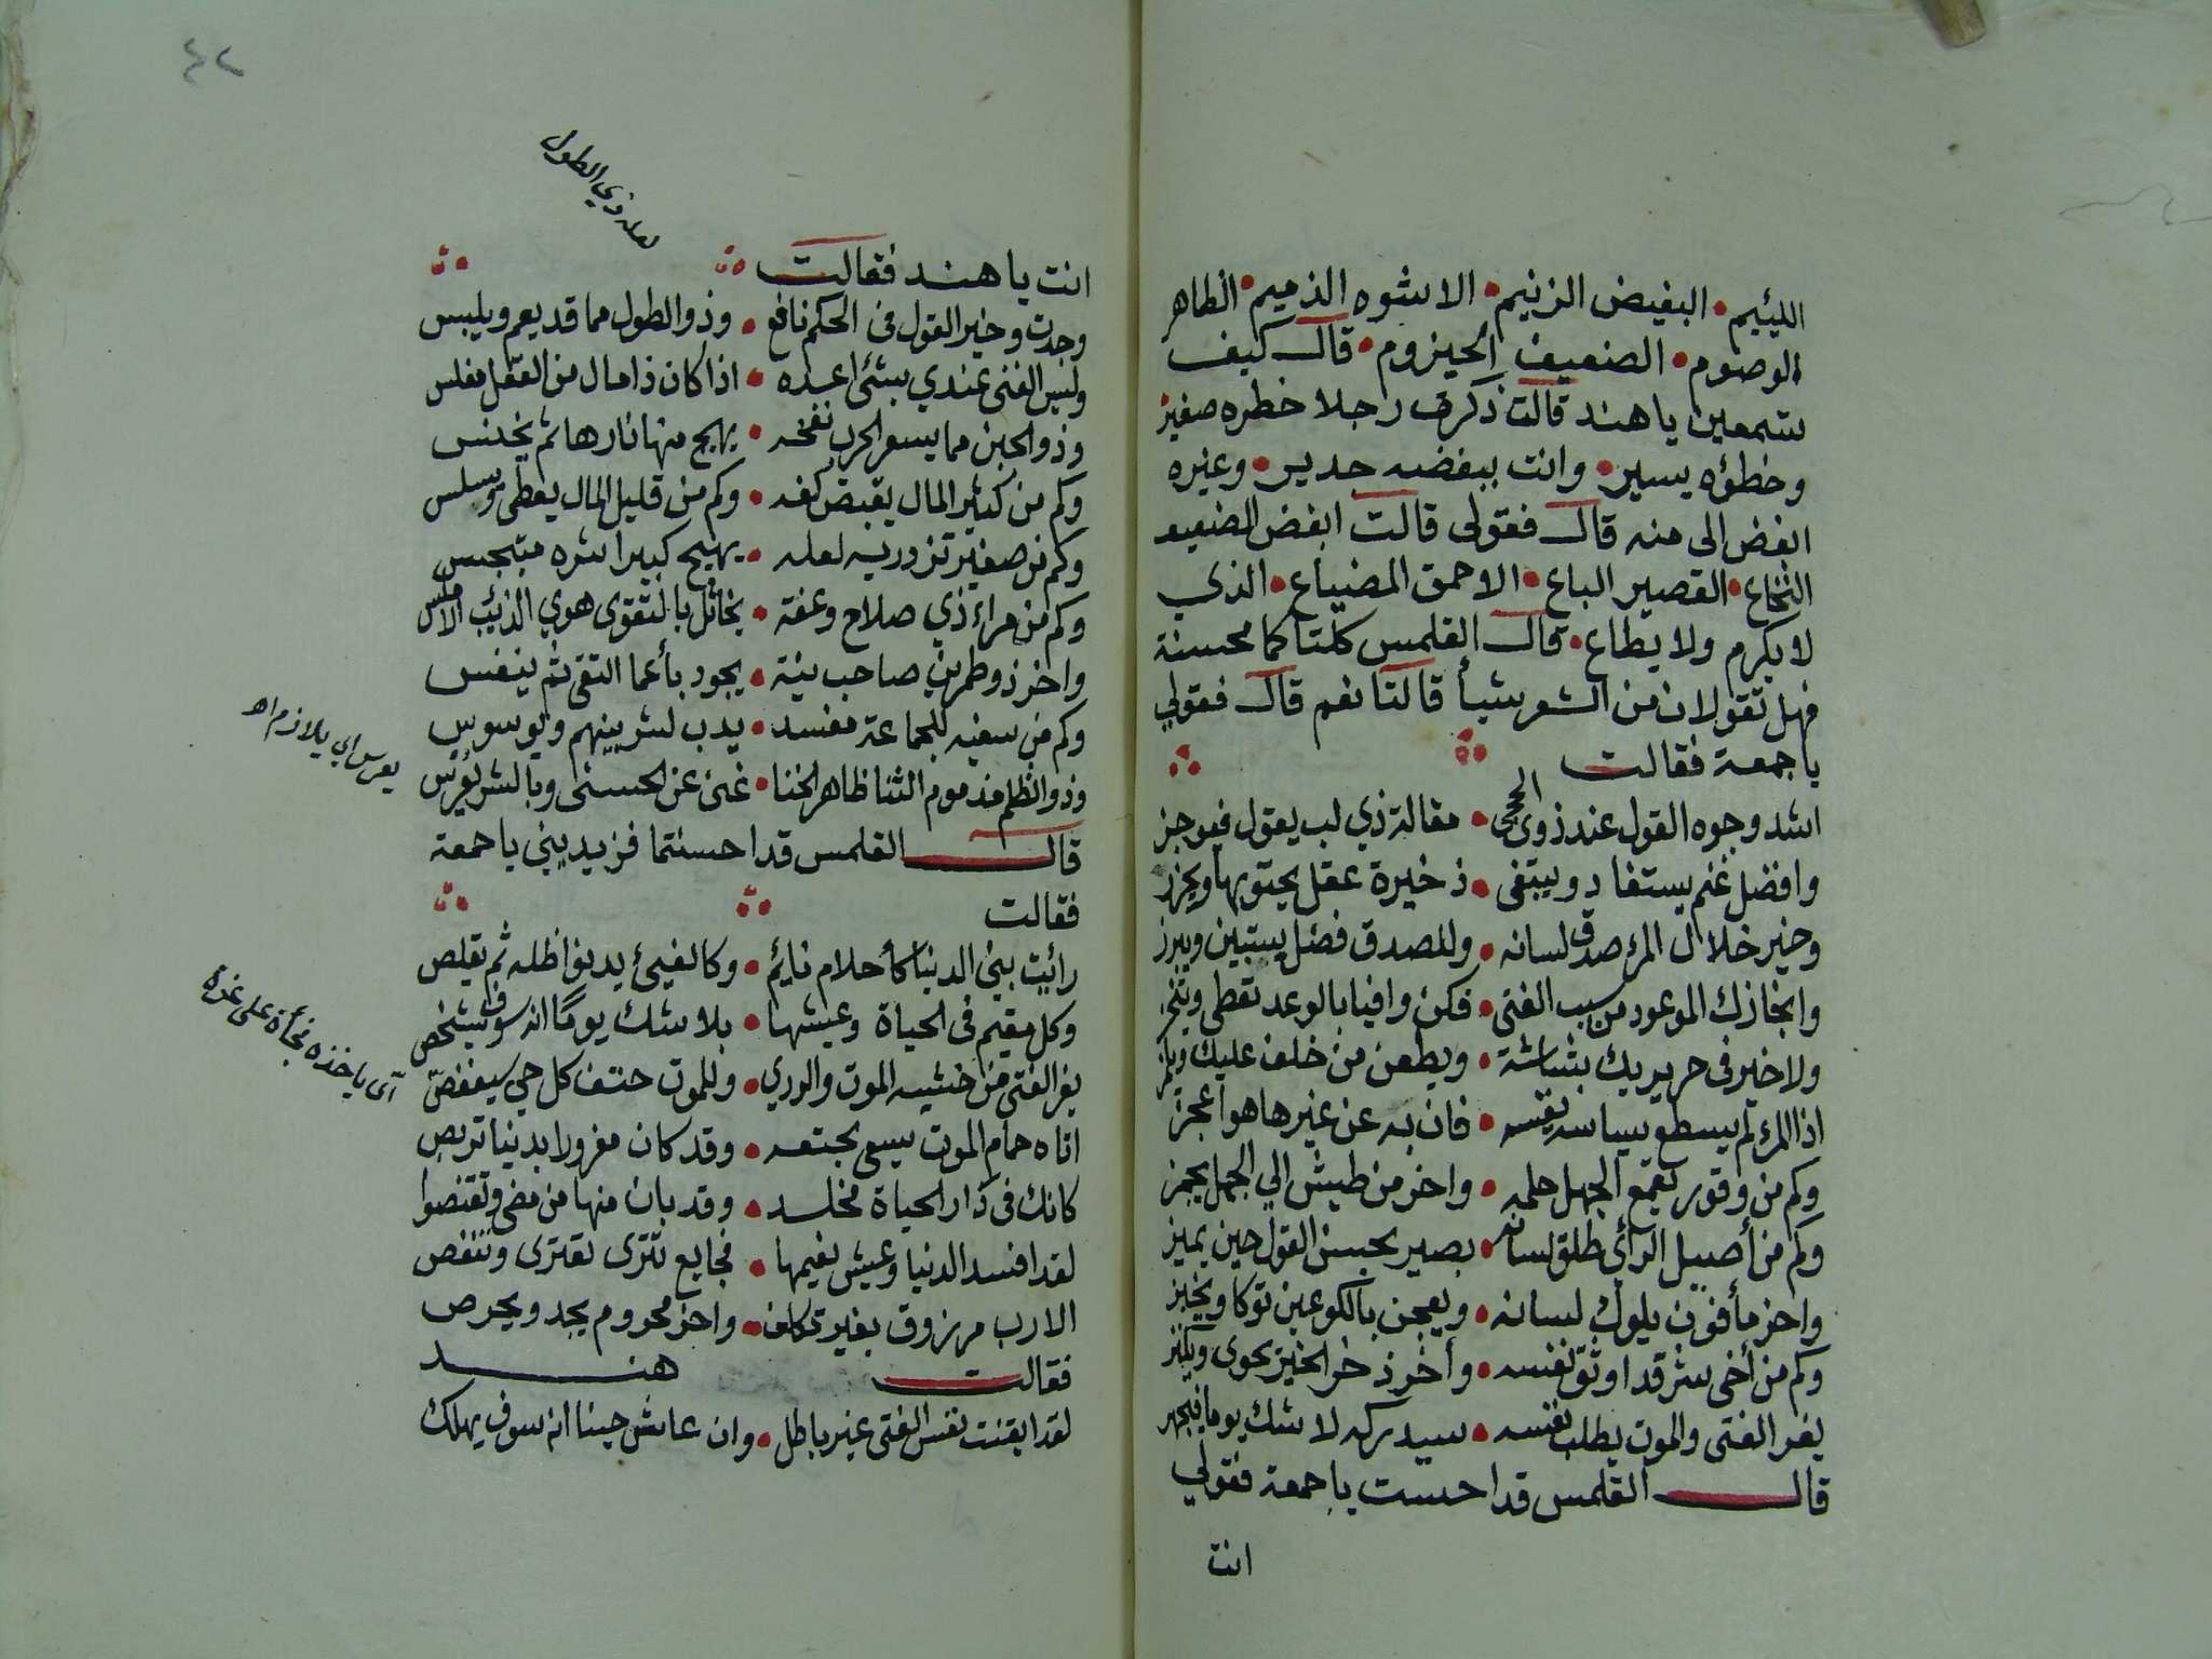 اللئيم • البغيض الزنيم • الاشوه الذميم • الظاهر
الوصوم • الضعيف الحيزوم • قال كيف
تسمعين يا هند قالت ذكرت رجلا خطره صغير
وخطؤه يسير • وانت ببغضه جدير • وغيره
ابغض الى منه قال فقولى قالت ابغض الضعيف
النخاع • القصير الباع • الاحمق المضياع • الذي
لا يكرم ولا يطاع • قال القلمس كلتاكما محسنة
فهل تقولان من الشعر شيأ قالتا نعم قال فقولي
يا جمعة فقالت
اشد وجوه القول عند ذوى الحجى • مقالة ذي لب يقول فيوجز
وافضل غنم يستفاد ويبتغى • ذخيرة عقل يحتويها ويحرز
وخير خلال المرء صدق لسانه • وللصدق فضل يستبين ويبرز
وانجازك الموعود من سبب الفتى • فكن وافيا بالوعد تعطى وتنجز
ولا خير فى حر يريك بشاشة • ويطعن من خلف عليك ويلمز
اذا المرء لم يسطع سياسة نفسه • فان به عن غيرها هو اعجز
وكم من وقور يقمع الجهل حلمه • واخر من طيش الي الجهل يجمز
وكم من أصيل الرأي طلق لسانه • بصير بحسن القول حين يميز
واخر مأفون يلوك لسانه • ويعجن بالكوعين نوكا ويخبز
وكم من أخى شر قد اوثق نفسه • وأخر ذخر الخير يحوى ويكنز
يفر الفتى والموت يطلب نفسه • سيدركه لا شك يوما فيجهز
قال القلمس قد احسنت يا جمعة فقولي
انت
٤٢
لعله وذي الطول
انت يا هند فقالت
وجدت وخير القول فى الحكم نافع • وذو الطول مما قد يعم ويلبس
وليس الفتى عندي بشئ اعده • اذا كان ذا مال من العقل مفلس
وذو الجبن مما يسعر الحرب نفخه • يهيج منها نارها ثم يخنس
وكم من كثير المال يقبض كفه • وكم من قليل المال يعطى ويسلس
وكم من صغير تزدريه لعله • يهيج كبيرا شره متبجس
وكم من مراء ذي صلاح وعفة • يخاتل بالتقوى هوي الذئب الاملس
واخر ذو طمرين صاحب نية • يجود بأعما التقى ثم ينفس
وكم من سفيه للجماعة مفسد • يدب لشر بينهم ويوسوس
وذو الظلم مذموم الثنا ظاهر الخنا • غنى عن الحسنى وبالشر يعرس
يعرس اي يلازم اه
قال القلمس قد احسنتما فزيديني يا جمعة
فقالت
رائيت بني الدنيا كأحلام نايم • وكالفيئ يدنو اظله ثم يقلص
وكل مقيم فى الحياة وعيشها • بلا شك يومًا انه سوف يشخص
يفر الفتى من خشيه الموت والردي • وللموت حتف كل حي سيغفص
اى ياخذه فجأة على غرة
اتاه حمام الموت يسعى بحتفه • وقد كان مغرولا بدنيا تربص
كانك فى دار الحياة مخلد • وقد بان منها من مضى وتقنصوا
لقد افسد الدنيا وعيش نعيمها • فجايع تترى تعترى وتنغص
الا رب مرزوق بغير تكلف • واخر محروم يجد ويحرص
فقالت هند
لقد ايقنت نفس الفتى غير باطل • وان عاش حينا انه سوف يهلك